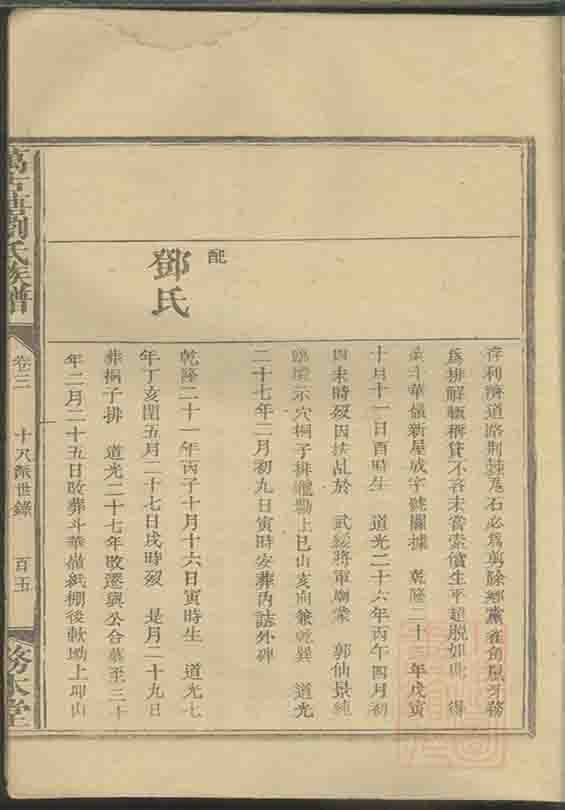 存利濟道路荆棘瓦石必為剪除鄉黨雀角鼠牙務
為排解頓稱貸不吝未嘗索償生平超脫如此 得
斗華嶺新屋成字號圖據 乾隆二十三年戊寅
十月十一日酉時生 道光二十六年丙午四月初
四未時歿因扶乩於 武綏將軍廟蒙 郭仙景純
臨壇示穴桐子排礎坳上巳山亥向兼乾巽 道光
二十七年二月初九日寅時安葬內誌外碑
配
鄧氏
乾隆二十一年丙子十月十六日寅時生 道光七
年丁亥閏五月二十七日戌時歿 是月二十九日
葬桐子排 道光二十七年改遷與公合墓至三十
年二月二十五日改葬斗華嶺紙棚後軟坳上卯山
萬古 劉氏族譜
卷三 十八派世錄 百五 務本堂